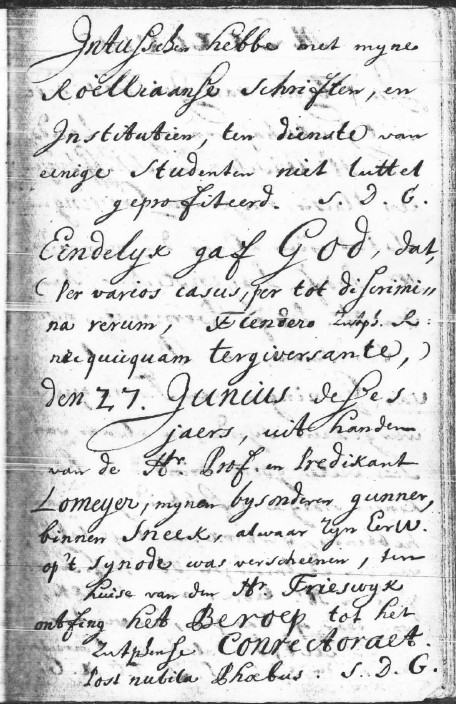 Intusschen hebbe met myne
Roëlliaanse schriften, en
Institutien, ten dienste van
einige studenten niet luttel
geprofiteerd. S. D. G.
Eindelyk gaf GOD, dat,
(Per varios casus, per tot discrimi„
na rerum, Fiendero Zutph. R:
nec quicquam tergiversante,)
den 27. Junius desses
jaers, uit handen
van de Hr. Prof. en Predikant
Lomeyer, mynen bysonderen gunner,
binnen Sneek, alwaar zyn Eerw.
op't synode was verscheenen, ten
huise van den Hr. Frieswyk
ontfing het Beroep tot het
Zutphense Conrectoraet.
Post nubila Phœbus. S. D. G.